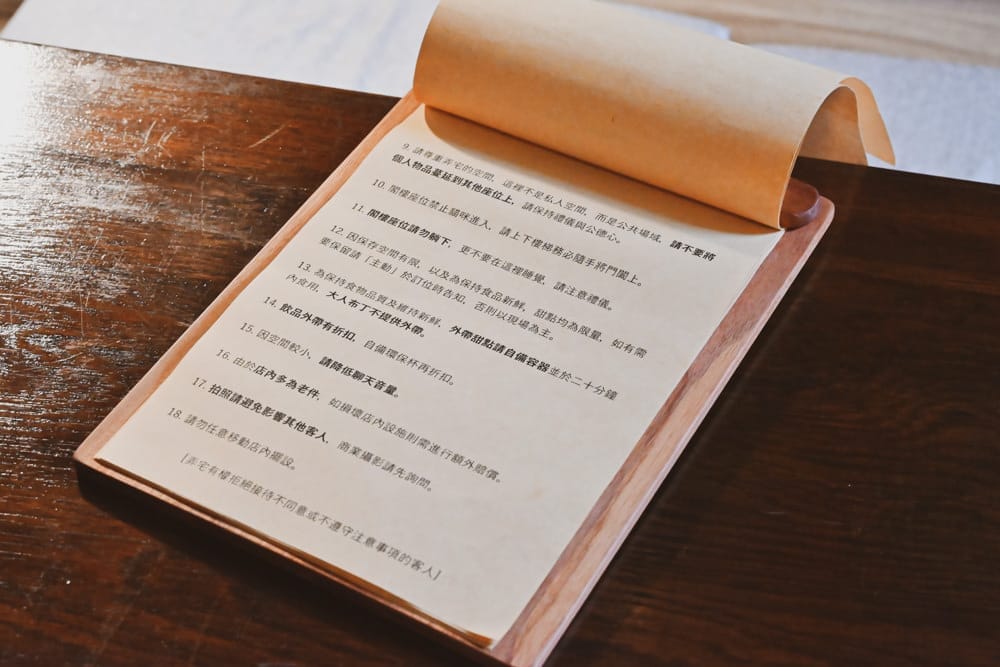 9. 請尊重弄宅的空間，這裡不是私人空間，而是公共場域，請不要將
個人物品蔓延到其他座位上，請保持禮儀與公德心。
10. 閣樓座位禁止貓咪進入，請上下樓梯務必隨手將門關上。
11. 閣樓座位請勿躺下，更不要在這裡睡覺，請注意禮儀。
12. 因保存空間有限，以及為保持食品新鮮，甜點均為限量，如有需
要保留請「主動」於訂位時告知，否則以現場為主。
13. 為保持食物品質及維持新鮮，外帶甜點請自備容器並於二十分鐘
內食用，大人布丁不提供外帶。
14. 飲品外帶有折扣，自備環保杯再折扣。
15. 因空間較小，請降低聊天音量。
16. 由於店內多為老件，如損壞店內設施則需進行額外賠償。
17. 拍照請避免影響其他客人，商業攝影請先詢問。
18. 請勿任意移動店內擺設。
[弄宅有權拒絕接待不同意或不遵守注意事項的客人]